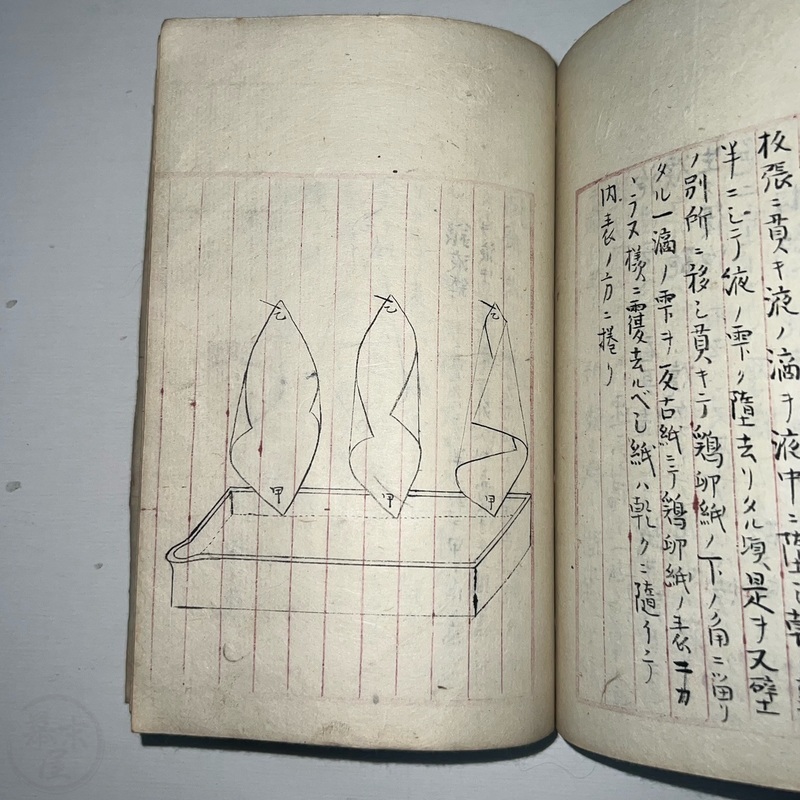 板張ニ貫キ液ノ滴ヲ液中ニ
半ニシテ液ノ雫ク墮去リタル頃是ヲ又壁上
ノ別所ニ移シ貫キテ鶏卵紙ノ下ノ角ニ溜リ
タル一滴ノ雫ヲ反古紙ニテ鶏卵紙ノ表ニカ
、ラヌ様ニ覆去ルベシ紙ハ乾クニ隨イテ
内表ノ方ニ捲リ
乙
乙
乙
甲
甲
甲